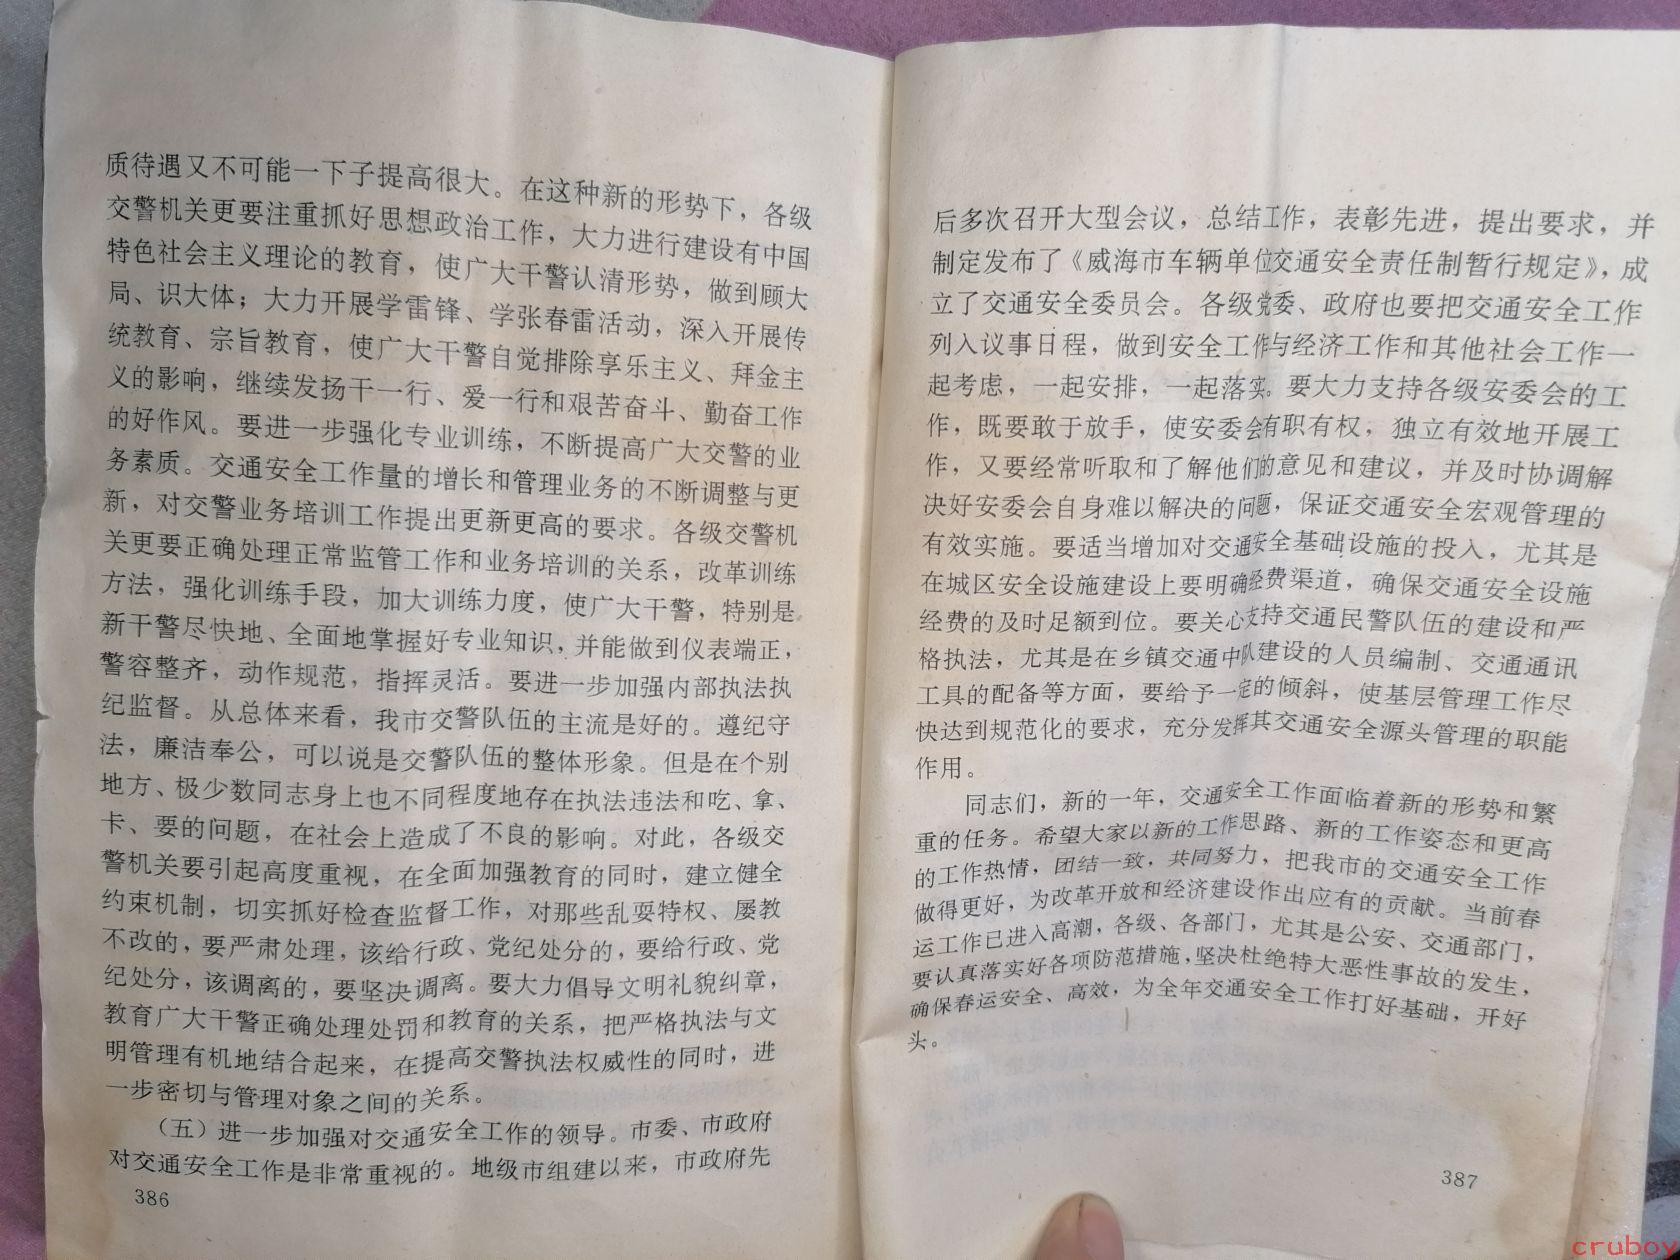 质待遇又不可能一下子提高很大。在这种新的形势下，各级
交警机关更要注重抓好思想政治工作，大力进行建设有中国
特色社会主义理论的教育，使广大干警认清形势，做到顾大
局、识大体；大力开展学雷锋、学张春雷活动，深入开展传
统教育、宗旨教育，使广大干警自觉排除享乐主义、拜金主
义的影响，继续发扬干一行、爱一行和艰苦奋斗、勤奋工作
的好作风。要进一步强化专业训练，不断提高广大交警的业
务素质。交通安全工作量的增长和管理业务的不断调整与更
新，对交警业务培训工作提出更新更高的要求。各级交警机
关更要正确处理正常监管工作和业务培训的关系，改革训练
方法，强化训练手段，加大训练力度，使广大干警，特别是
新干警尽快地、全面地掌握好专业知识，并能做到仪表端正，
警容整齐，动作规范，指挥灵活。要进一步加强内部执法执
纪监督。从总体来看，我市交警队伍的主流是好的。遵纪守
法，廉洁奉公，可以说是交警队伍的整体形象。但是在个别
地方、极少数同志身上也不同程度地存在执法违法和吃、拿、
卡、要的问题，在社会上造成了不良的影响。对此，各级交
警机关要引起高度重视，在全面加强教育的同时，建立健全
约束机制，切实抓好检查监督工作，对那些乱耍特权、屡教
不改的，要严肃处理，该给行政、党纪处分的，要给行政、党
纪处分，该调离的，要坚决调离。要大力倡导文明礼貌纠章，
教育广大干警正确处理处罚和教育的关系，把严格执法与文
明管理有机地结合起来，在提高交警执法权威性的同时，进
一步密切与管理对象之间的关系。
（五）进一步加强对交通安全工作的领导。市委、市政府
对交通安全工作是非常重视的。地级市组建以来，市政府先
386
后多次召开大型会议，总结工作，表彰先进，提出要求，并
制定发布了《威海市车辆单位交通安全责任制暂行规定》，成
立了交通安全委员会。各级党委、政府也要把交通安全工作
列入议事日程，做到安全工作与经济工作和其他社会工作一
起考虑，一起安排，一起落实。要大力支持各级安委会的工
作，既要敢于放手，使安委会有职有权，独立有效地开展工
作，又要经常听取和了解他们的意见和建议，并及时协调解
决好安委会自身难以解决的问题，保证交通安全宏观管理的
有效实施。要适当增加对交通安全基础设施的投入，尤其是
在城区安全设施建设上要明确经费渠道，确保交通安全设施
经费的及时足额到位。要关心支持交通民警队伍的建设和严
格执法，尤其是在乡镇交通中队建设的人员编制、交通通讯
工具的配备等方面，要给予一定的倾斜，使基层管理工作尽
快达到规范化的要求，充分发挥其交通安全源头管理的职能
作用。
同志们，新的一年，交通安全工作面临着新的形势和繁
重的任务。希望大家以新的工作思路、新的工作姿态和更高
的工作热情，团结一致，共同努力，把我市的交通安全工作
做得更好，为改革开放和经济建设作出应有的贡献。当前春
运工作已进入高潮，各级、各部门，尤其是公安、交通部门，
要认真落实好各项防范措施，坚决杜绝特大恶性事故的发生，
确保春运安全、高效，为全年交通安全工作打好基础，开好
头。
387
cruboy